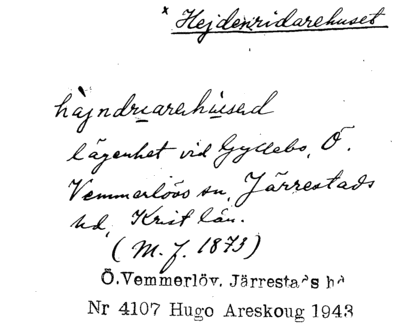 × Hejdenridarehuset
hàjndruarehúsed
lägenhet vid Gyllebo, Ö.
Vemmerlövs sn, Järrestads
hd, Krist län.
(M. J. 1873)
Ö.Vemmerlöv. Järrestads hd
Nr 4107 Hugo Areskoug 1943